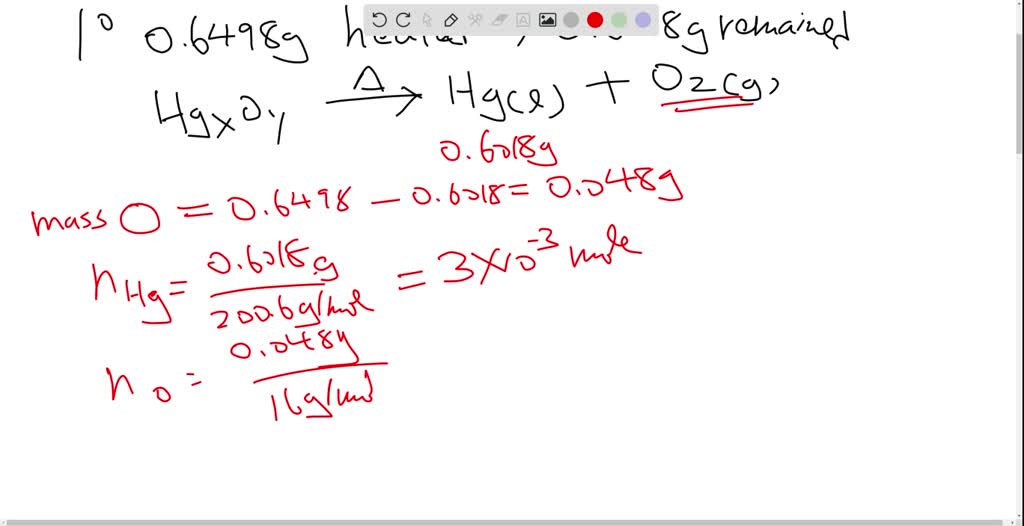 1° 0.6498g 8g remained
HgxOy Δ→ Hg(l) + O2(g)
0.6018g
mass O = 0.6498 - 0.6018 = 0.048g
nHg = 0.6018g / 200.6g/mol = 3×10⁻³ mole
nO = 0.048g / 16g/mol